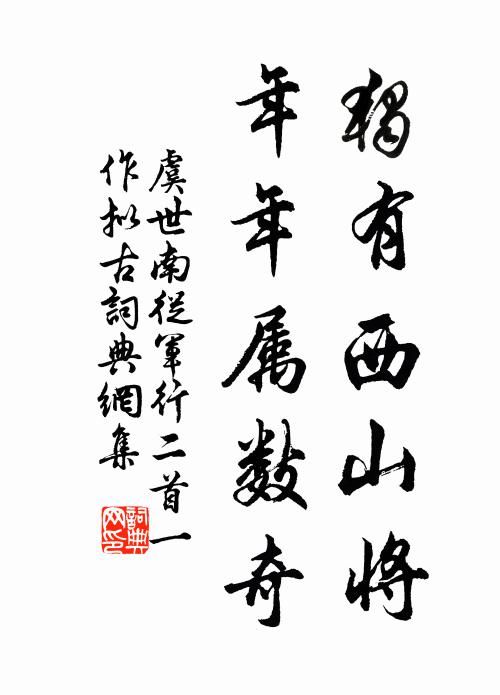 獨有西山將
年年属數奇
虞世南從軍行二首一
作拟古詞典網集
詞典网印